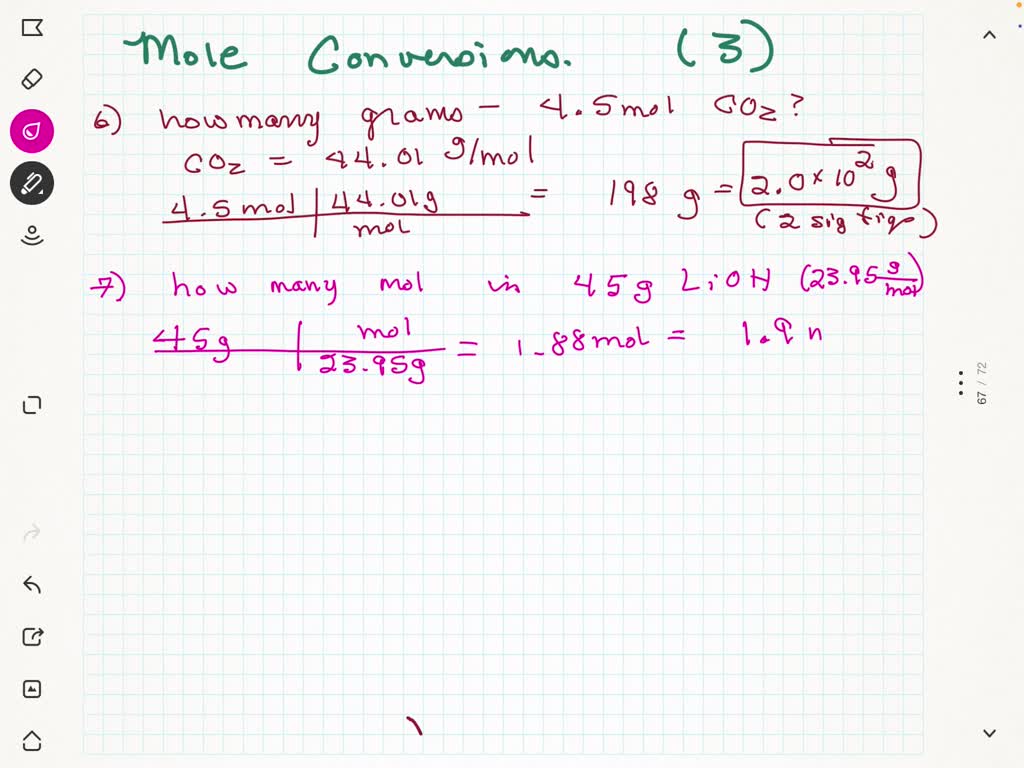 Mole Conversions. (3)
6) how many grams - 4.5 mol CO₂?
CO₂ = 44.01 g/mol
4.5 mol | 44.01g / mol = 198 g = 2.0 × 10² g
(2 sig figs)
7) how many mol in 45g LiOH (23.95 g/mol)
45g | mol / 23.95g = 1.88 mol = 1.9 n
67 / 72